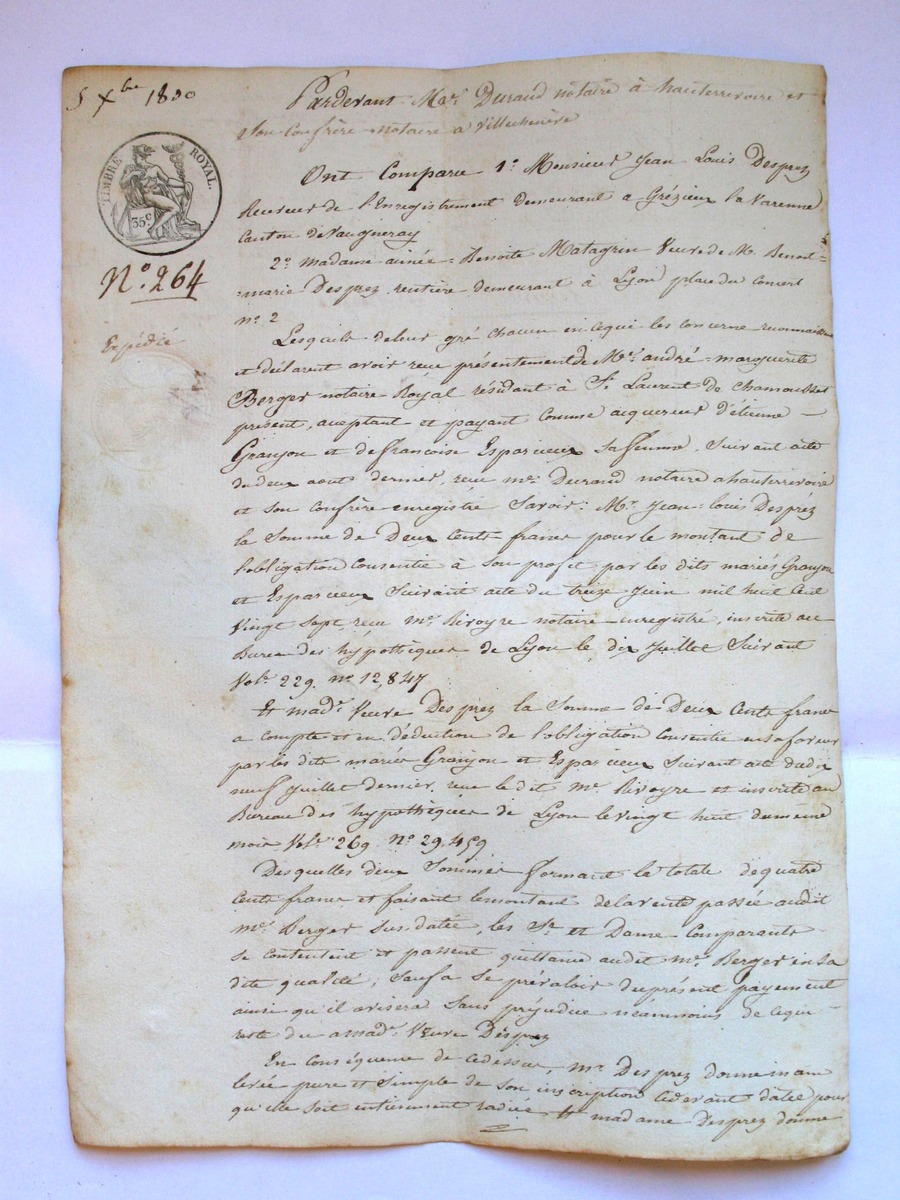 5 Xbre 1830
TIMBRE ROYAL.
35c
No. 264
Expédié
Pardevant Me. Durand notaire à hauterrivoire et
Son Confrère notaire a Villechenève
Ont Comparu 1o. Monsieur Jean Louis Desprez
Receveur de l'Enregistrement demeurant a Grézieux la Varenne
Canton de Vaugneray
2o. Madame ainée Benoite Matagrin Veuve de M. Benoit=
=marie Desprez rentière demeurant à Lyon place du concert
no. 2
Lesquels de leur gré chacun en cequi les concerne reconnaissent
et déclarent avoir reçu présentement de Me. andré-marguerite
Berger notaire Royal résidant à St. Laurent de Chamousset
présent, aceptant et payant comme acquereur d'étienne
Granjon et de francoise Esparcieux Sa ffemme, Suivant acte
du deux aout dernier, reçu me. Durand notaire a hauterrivoire
et son confrère enregistré Savoir: Mr. Jean-Louis Desprez
la Somme de Deux Cents francs pour le montant de
l'obligation Consentie à Son profit par les dits mariés Granjon
et Esparcieux Suivant acte du treize Juin mil huit Cent
Vingt Sept, reçu me. Rivoyre notaire enregistré, inscrite au
Bureau des hypothèques de Lyon le dix Juillet Suivant
Vol. 229. no. 12,847
Et made. Veuve Desprez la Somme de Deux Cents francs
a compte et en déduction de l'obligation Consentie en sa faveur
par les dits mariés Granjon et Esparcieux Suivant acte du dix
neuf Juillet dernier, reçu le dit me. Rivoyre et inscrite au
Bureau des hypothèques de Lyon le vingt huit du meme
mois Vol. 269. No. 29,459
Desquelles deux Sommes formant la totale de quatre
Cents francs et faisant le montant de la vente passée audit
me. Berger Sus datée, les Sr. et Dame Comparants
se contentent et passent quittance audit me. Berger en sa
dite qualité, Sauf a se prévaloir du présent payement
ainsi qu'il avisera Sans préjudice néammoins de cequi
reste du a made. Veuve Desprez
En conséquence de cedessus, mr. Desprez donne main
levée pure et Simple de Son inscription cidevant datée pour
qu'elle soit entierement radiée Et madame Desprez donne